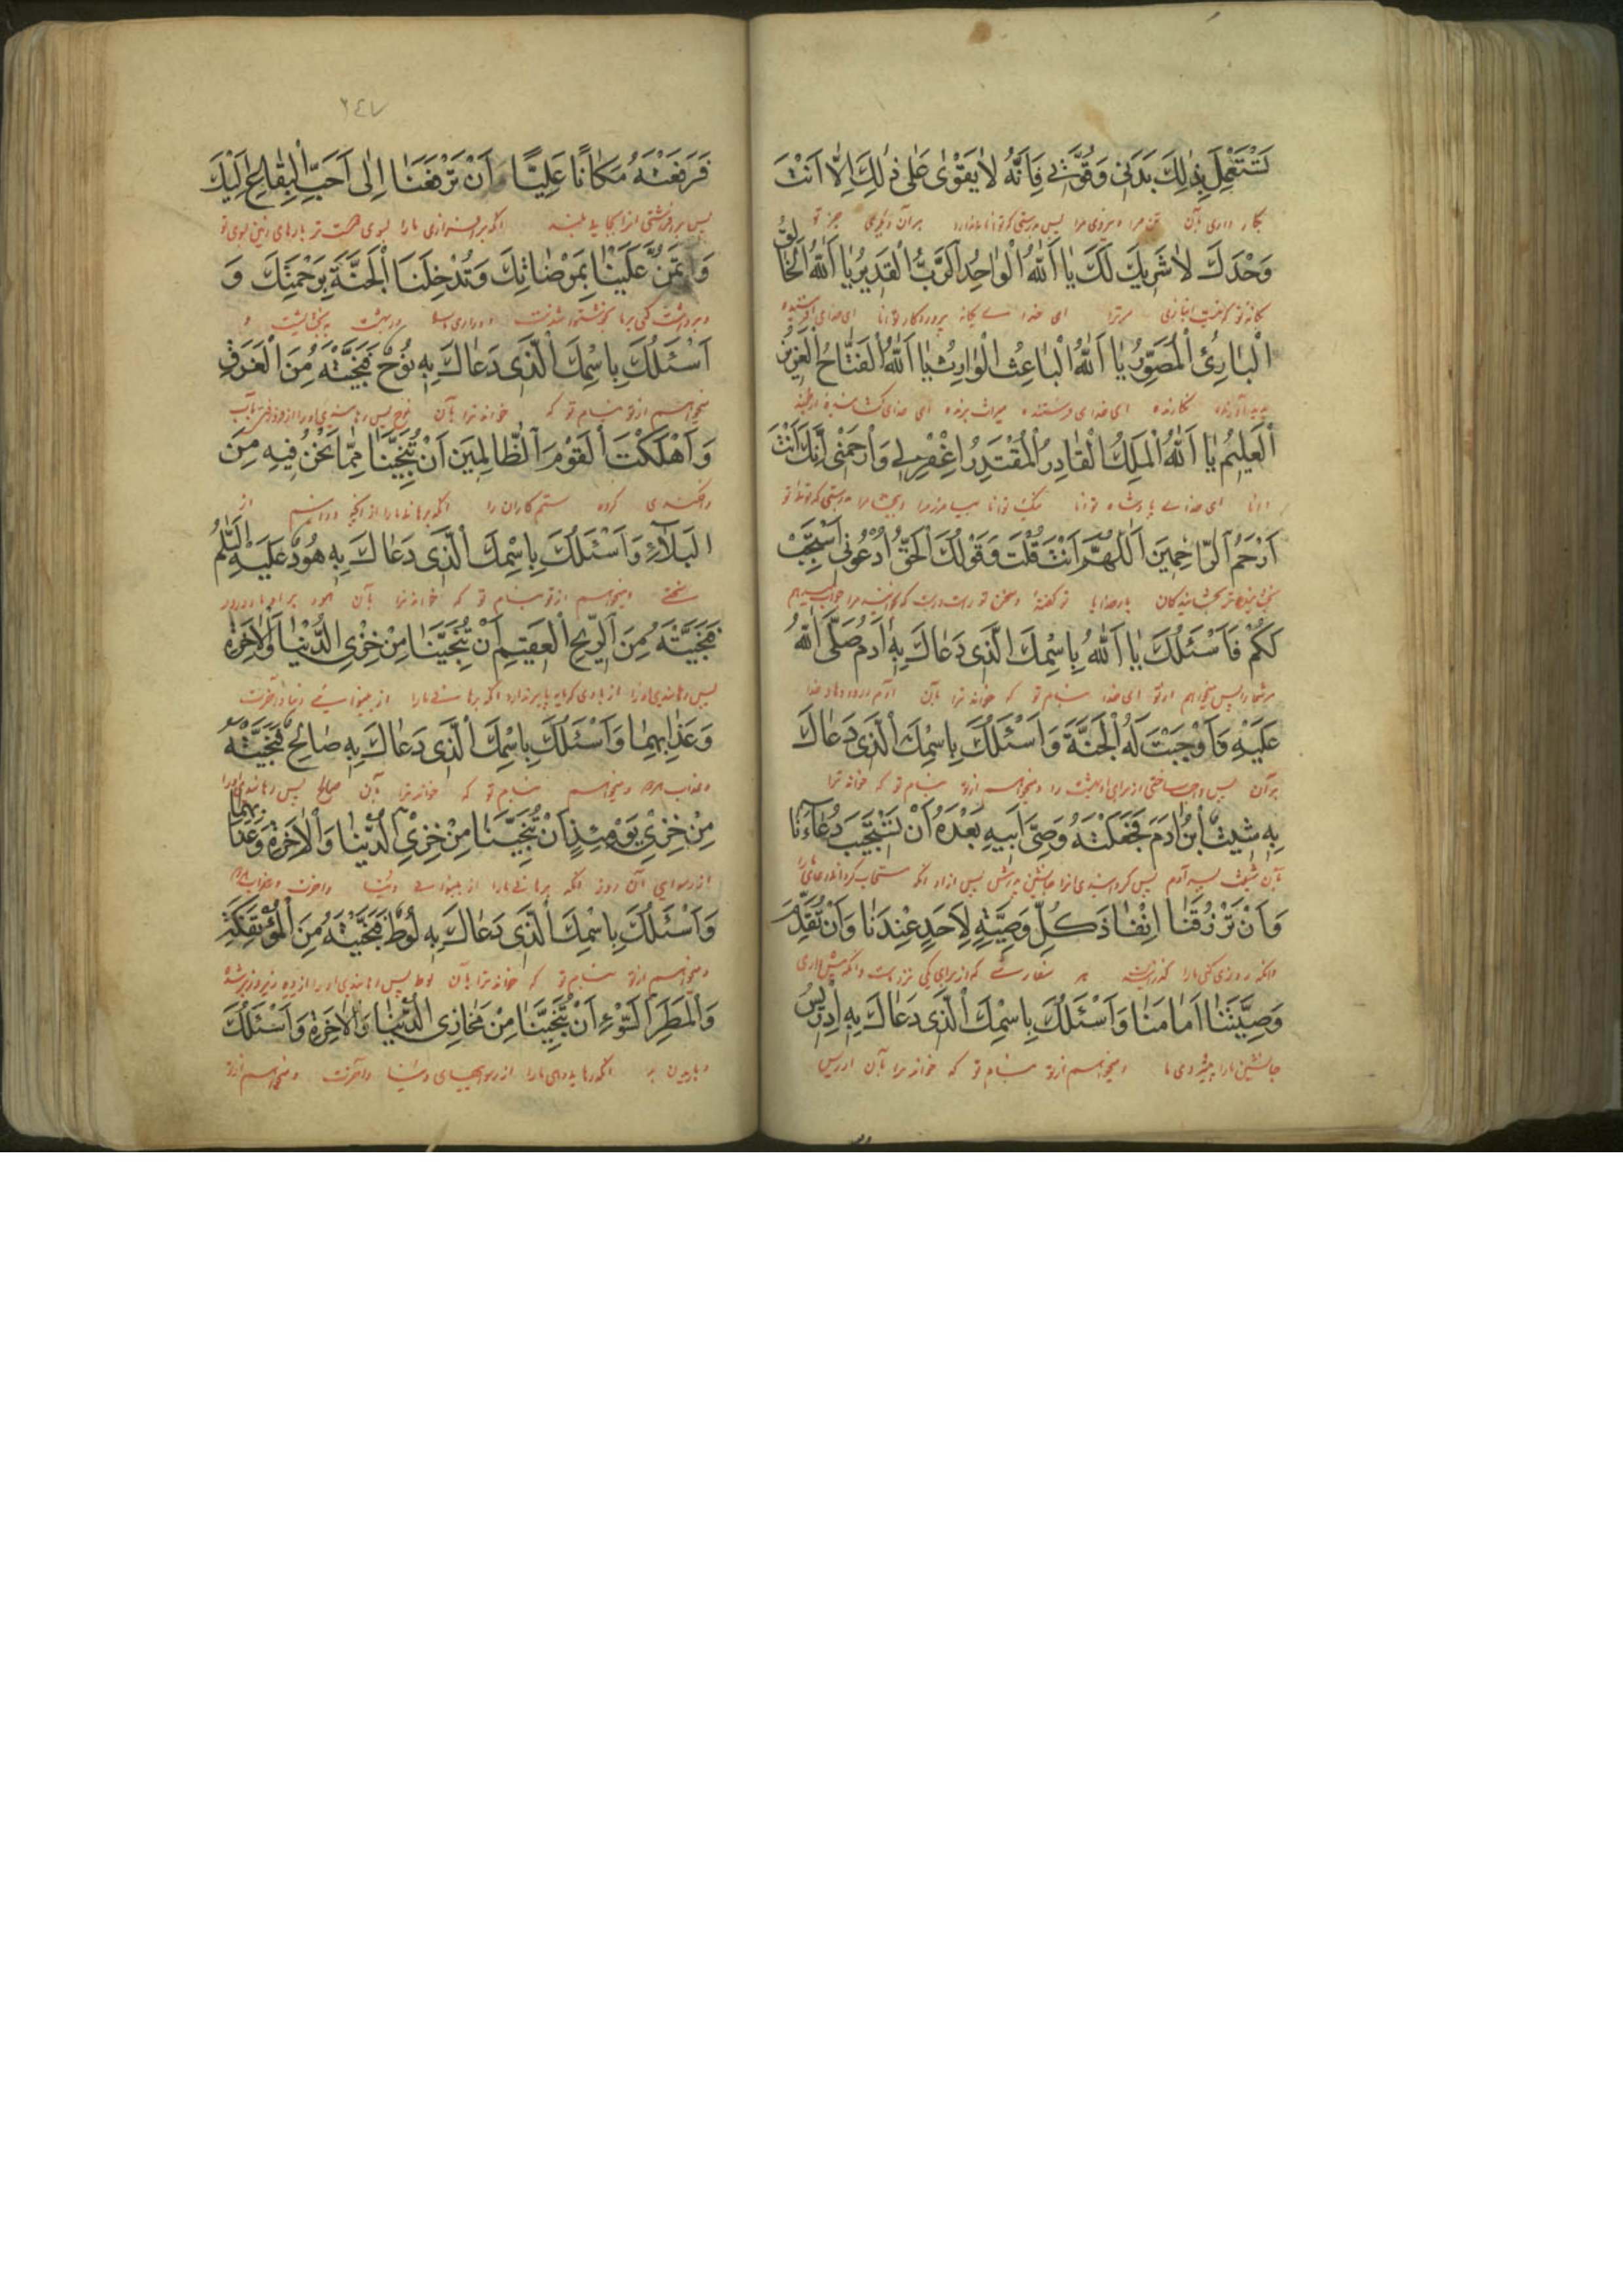 تَسْتَعْمِلَ بِذٰلِكَ بَدَنِى وَقُوَّتِى فَاِنَّهُ لٰا يَقْوٰى عَلٰى ذٰلِكَ اِلّٰا اَنْتَ
بكار دارى بآن تن مرا و نيروى مرا پس بدرستى كه توانا ندارد بر آن ديگرى جز تو
وَحْدَكَ لٰا شَرِيكَ لَكَ يٰا اَللّٰهُ الْوٰاحِدُ الرَّبُّ الْقَدِيرُ يٰا اَللّٰهُ الْخٰالِقُ
يگانه تو مر ترا اى خداى يگانه پروردكار توانا اى خداى آفريننده
الْبٰارِئُ الْمُصَوِّرُ يٰا اَللّٰهُ الْبٰاعِثُ الْوٰارِثُ يٰا اَللّٰهُ الْفَتّٰاحُ الْعَزِيزُ
پديدآورنده نكارنده اى خداى فرستنده ميراث برنده اى خداى كشاينده ارجمند
الْعَلِيمُ يٰا اَللّٰهُ الْمَلِكُ الْقٰادِرُ الْمُقْتَدِرُ اِغْفِرْ لِى وَارْحَمْنِى اِنَّكَ اَنْتَ
دانا اى خداى پادشاه توانا نيك توانا بيامرز مرا و ببخش مرا بدرستى كه تو تو
اَرْحَمُ الرّٰاحِمِينَ اَللّٰهُمَّ اَنْتَ قُلْتَ وَقَوْلُكَ الْحَقُّ اُدْعُونِى اَسْتَجِبْ
بخشاينده‌تر بخشايندكان بار خدايا تو كفتهٔ و سخن تو راست و درست كه بخوانيد مرا
لَكُمْ فَاَسْئَلُكَ يٰا اَللّٰهُ بِاسْمِكَ الَّذِى دَعٰاكَ بِهِ اٰدَمُ صَلَّى اللّٰهُ
مر شما را پس ميخواهم از تو اى خدا بنام تو كه خوانده ترا بآن آدم درود دهاد خدا
عَلَيْهِ فَاَوْجَبْتَ لَهُ الْجَنَّةَ وَاَسْئَلُكَ بِاسْمِكَ الَّذِى دَعٰاكَ
بر آن پس واجب ساختى از براى او بهشت را و ميخواهم از تو بنام تو كه خوانده ترا
بِهِ شِيثُ ابْنُ اٰدَمَ فَجَعَلْتَهُ وَصِىَّ اَبِيهِ بَعْدَهُ اَنْ تَسْتَجِيبَ دُعٰاءَنٰا
بآن شيث پسر آدم پس كردانيدى او را جانشين پدرش پس از او آنكه مستجاب كردانى دعاى ما را
وَاَنْ تَرْزُقَنٰا اِنْفٰاذَ كُلِّ وَصِيَّةٍ لِاَحَدٍ عِنْدَنٰا وَاَنْ تُقَدِّمَ
و آنكه روزى كنى ما را هر سفارشى كه از براى يكى نزد ماست و آنكه پيش دارى
وَصِيَّتَنٰا اَمٰامَنٰا وَاَسْئَلُكَ بِاسْمِكَ الَّذِى دَعٰاكَ بِهِ اِدْرِيسُ
و ميخواهم از تو بنام تو كه خوانده ترا بآن ادريس
٢٤٧
فَرَفَعْتَهُ مَكٰانًا عَلِيًّا وَاَنْ تَرْفَعَنٰا اِلٰى اَحَبِّ الْبِقٰاعِ اِلَيْكَ
پس برافراشتى او را بجايى بلند آنكه برافرازى ما را بسوى دوست‌تر
وَ تَمُنَّ عَلَيْنٰا بِمَرْضٰاتِكَ وَتُدْخِلَنَا الْجَنَّةَ بِرَحْمَتِكَ وَ
و درآرى ما را در بهشت به بخشايشت و
اَسْئَلُكَ بِاسْمِكَ الَّذِى دَعٰاكَ بِهِ نُوحٌ فَنَجَّيْتَهُ مِنَ الْغَرَقِ
ميخواهم از تو بنام تو كه خوانده ترا بآن نوح پس رهانيدى او را از
وَاَهْلَكْتَ الْقَوْمَ الظّٰالِمِينَ اَنْ تُنَجِّيَنٰا مِمّٰا نَحْنُ فِيهِ مِنَ
كروه ستمكاران را آنكه برهانى ما را از آنچه در آنيم از
الْبَلٰاءِ وَاَسْئَلُكَ بِاسْمِكَ الَّذِى دَعٰاكَ بِهِ هُودٌ عَلَيْهِ السَّلٰمُ
سختى و ميخواهم از تو بنام تو كه خوانده ترا بآن هود بر او باد درود
فَنَجَّيْتَهُ مِنَ الرِّيحِ الْعَقِيمِ اَنْ تُنَجِّيَنٰا مِنْ خِزْىِ الدُّنْيٰا وَالْاٰخِرَةِ
پس رهانيدى او را از بادى آنكه برهانى ما را از دنيا و آخرت
وَعَذٰابِهِمٰا وَاَسْئَلُكَ بِاسْمِكَ الَّذِى دَعٰاكَ بِهِ صٰالِحٌ فَنَجَّيْتَهُ
و عذاب هر دو و ميخواهم بنام تو كه خوانده ترا بآن صالح پس رهانيدى او را
مِنْ خِزْىِ يَوْمِئِذٍ اَنْ تُنَجِّيَنٰا مِنْ خِزْىِ الدُّنْيٰا وَالْاٰخِرَةِ وَعَذٰابِهِمٰا
از رسوايى آن روز آنكه برهانى ما را از دنيا و آخرت و عذاب هر دو
وَاَسْئَلُكَ بِاسْمِكَ الَّذِى دَعٰاكَ بِهِ لُوطٌ فَنَجَّيْتَهُ مِنَ الْمُؤْتَفِكَةِ
و ميخواهم از تو بنام تو كه خوانده ترا بآن لوط پس رهانيدى او را از ده زير و زبر شده
وَالْمَطَرِ السَّوْءِ اَنْ تُنَجِّيَنٰا مِنْ مَخٰازِى الدُّنْيٰا وَالْاٰخِرَةِ وَاَسْئَلُكَ
و باريدن بد آنكه ما را از رسواييهاى دنيا و آخرت و ميخواهم از تو